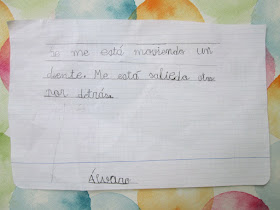 Se me está moviendo un
diente. Me está saliendo otro
por detrás.
Álvaro